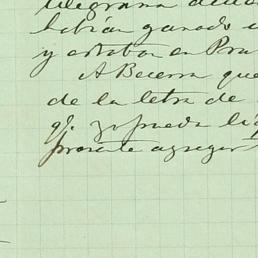 telegrama
habían ganado
y estaban en Pra
A Becerra que
de la letra de
qe. yo pueda
presente agregar